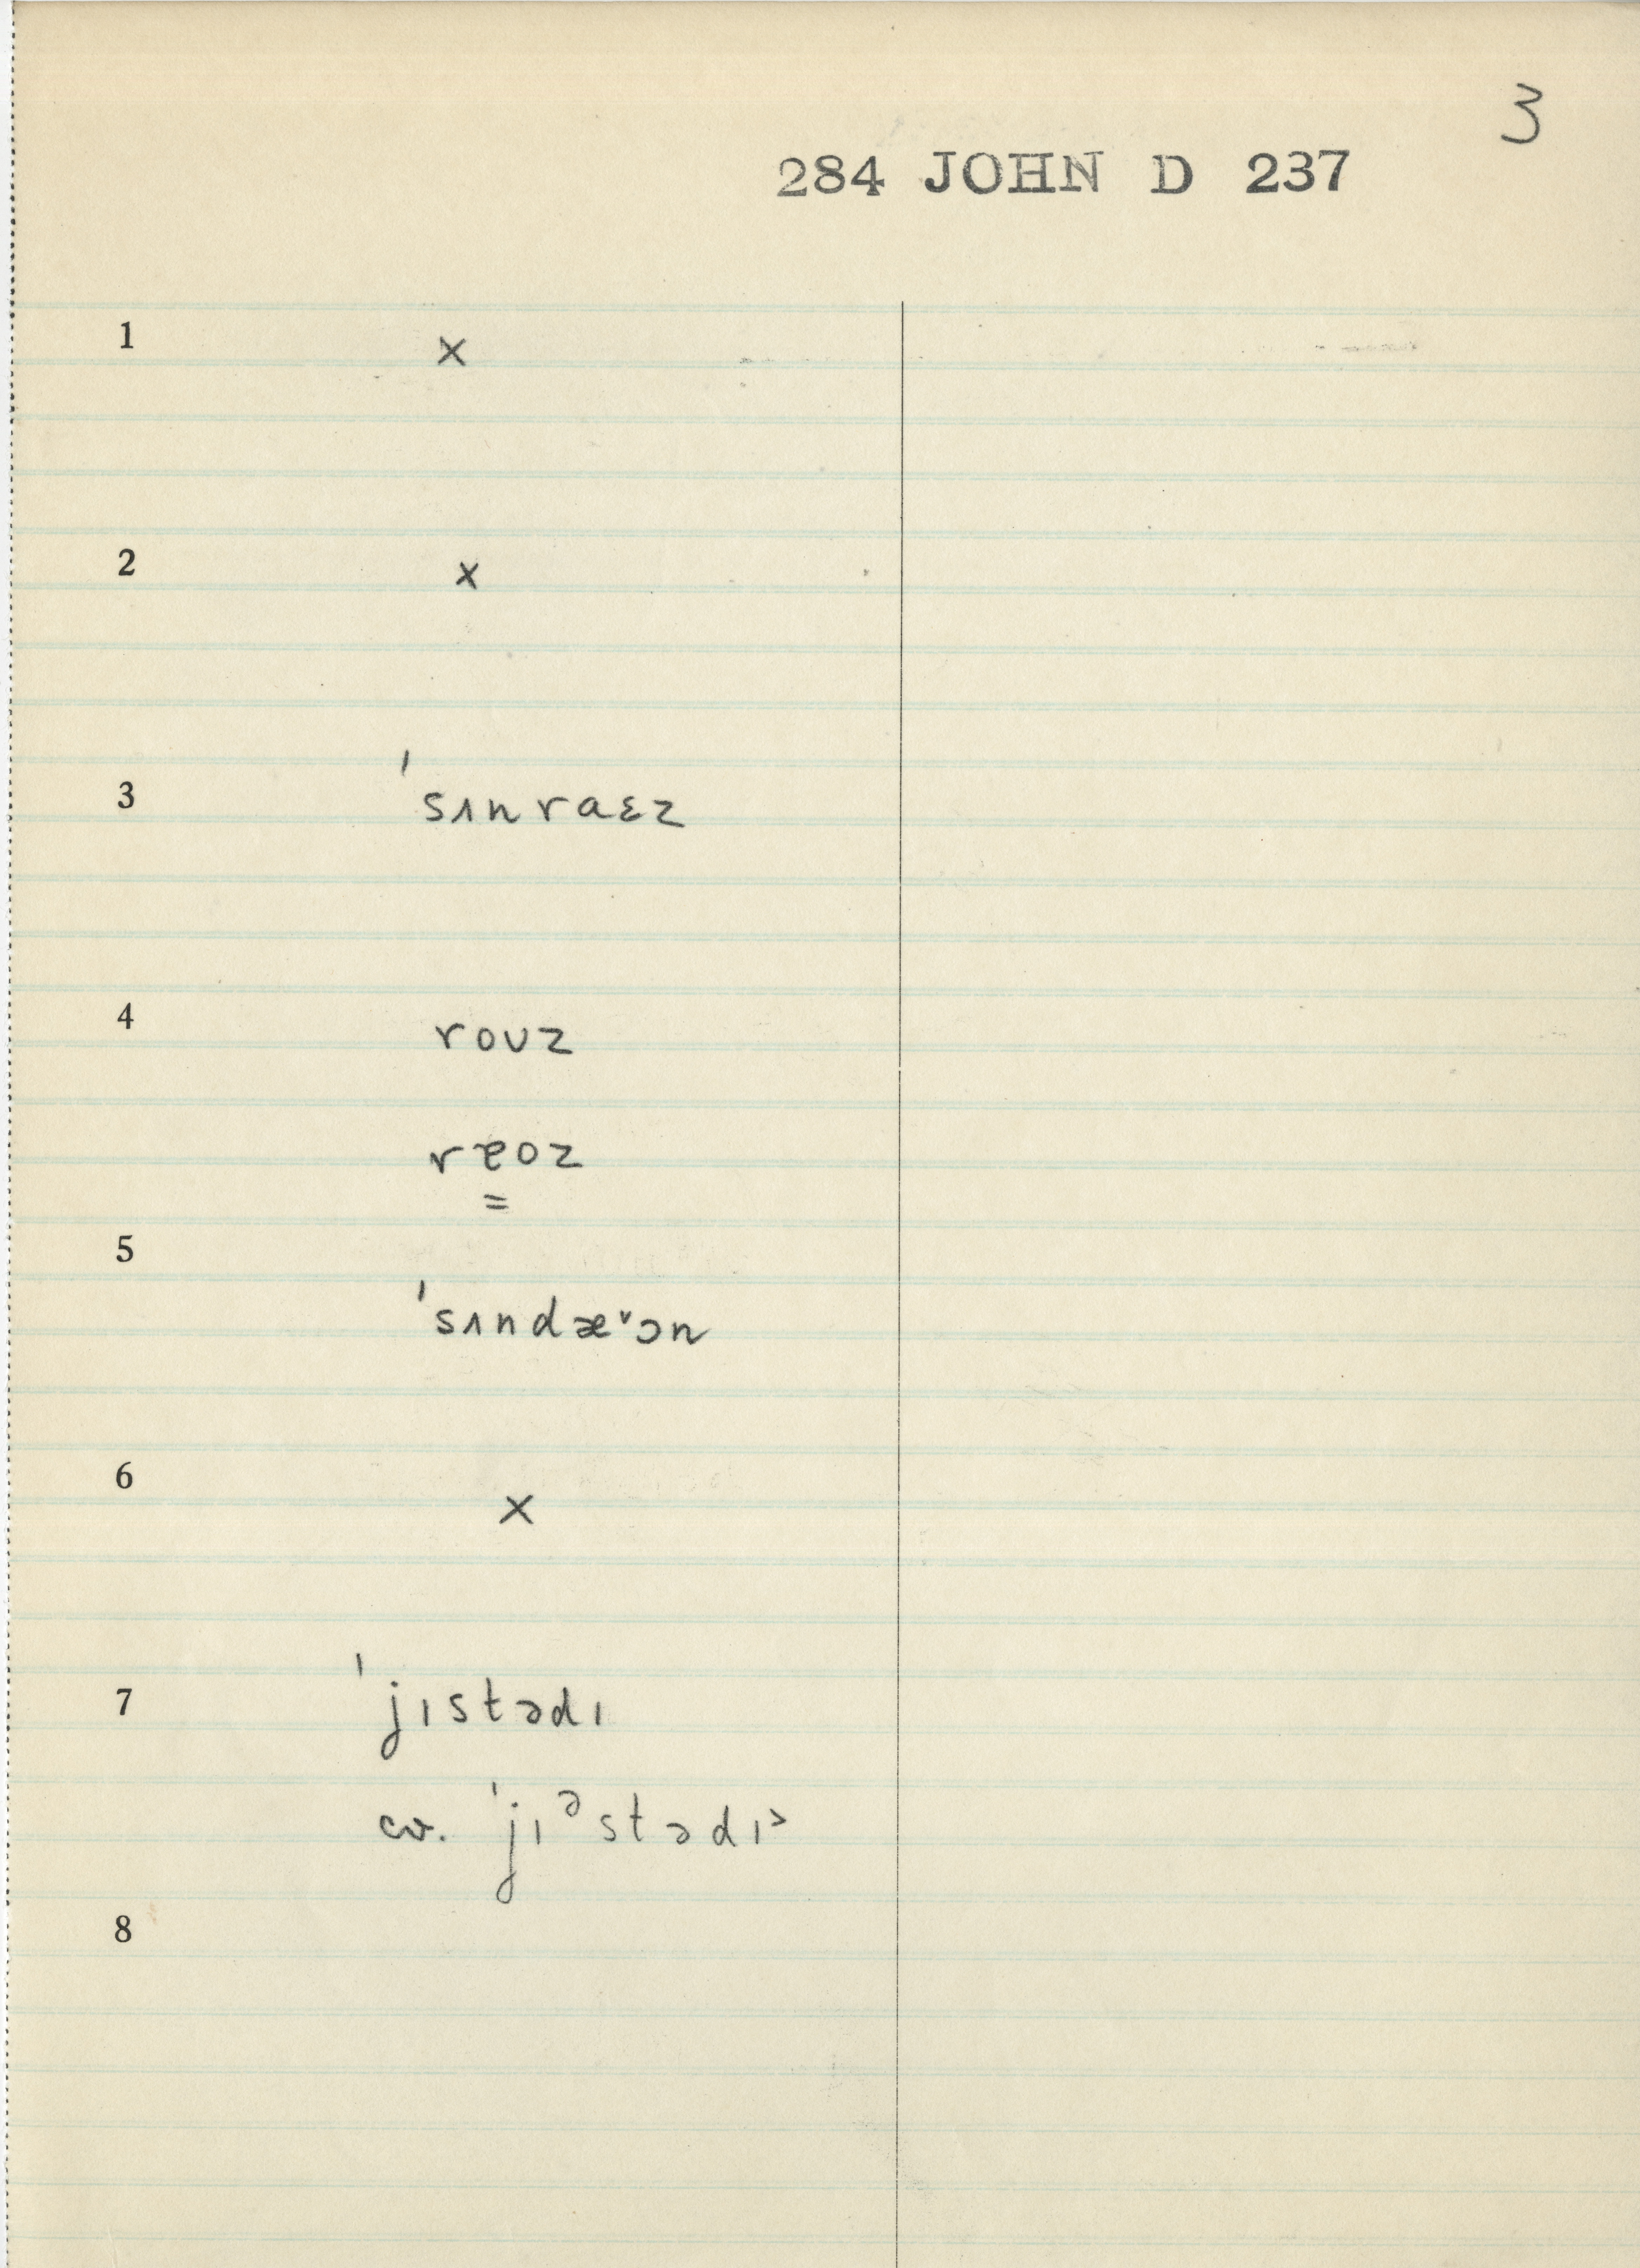 3
284 JOHN D 237
1 x
2 x
3 ˈsɪnraɛz
4 roʊz
rɐoz
=
5
ˈsɪndæᵛɔn
6 x
7 ˈjɪstədɪ
cv. ˈjɪᵊstədɪ˃
8